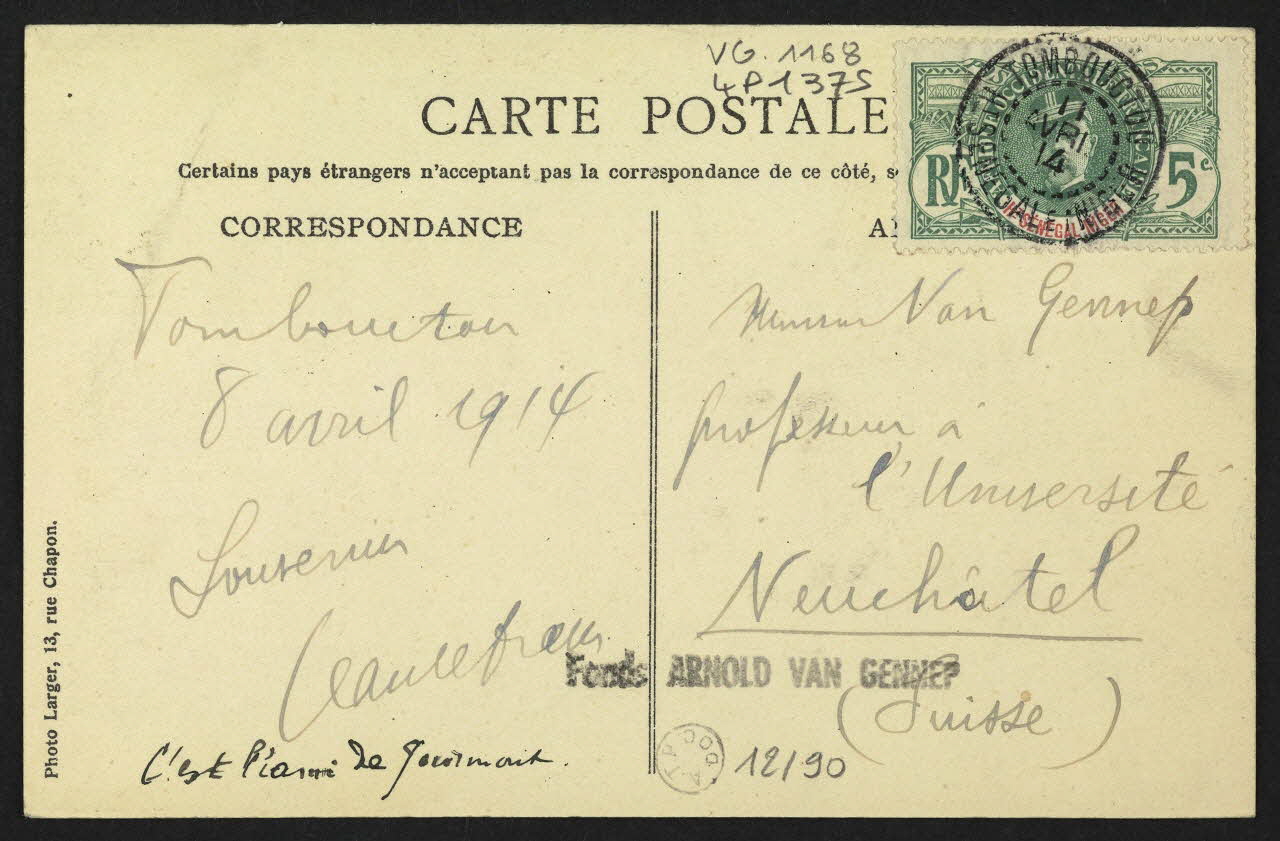 VG. 1168
4P1375
CARTE POSTALE
Certains pays étrangers n'acceptant pas la correspondance de ce côté, s
CORRESPONDANCE
TOMBOUCTOU
11
AVRI
14
RF
5c
Tombouctou
8 avril 1914
Souvenir
Monsieur Van Gennep
professeur à
l'Université
Neuchâtel
(Suisse)
Fonds ARNOLD VAN GENNEP
C'est l'ami de Gourmont.
ATP DOC
12/90
Photo Larger, 13, rue Chapon.